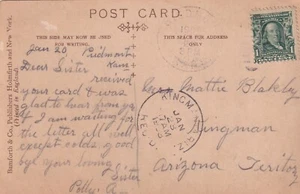 POST CARD
THIS SIDE MAY NOW BE USED
FOR WRITING.
THIS SPACE FOR ADDRESS
ONLY
Bamforth & Co., Publishers, Holmfirth and New York.
(Printed in England)
Jan 20 Piedmont
Kans
Dear Sister
received
your card & was
glad to hear from you
I am waiting for
the letter all well
except colds. good
bye your loving
Sister
Miss Mattie Blakely
Kingman
Arizona Teritory
KINGMAN
JAN
AM
REC'D